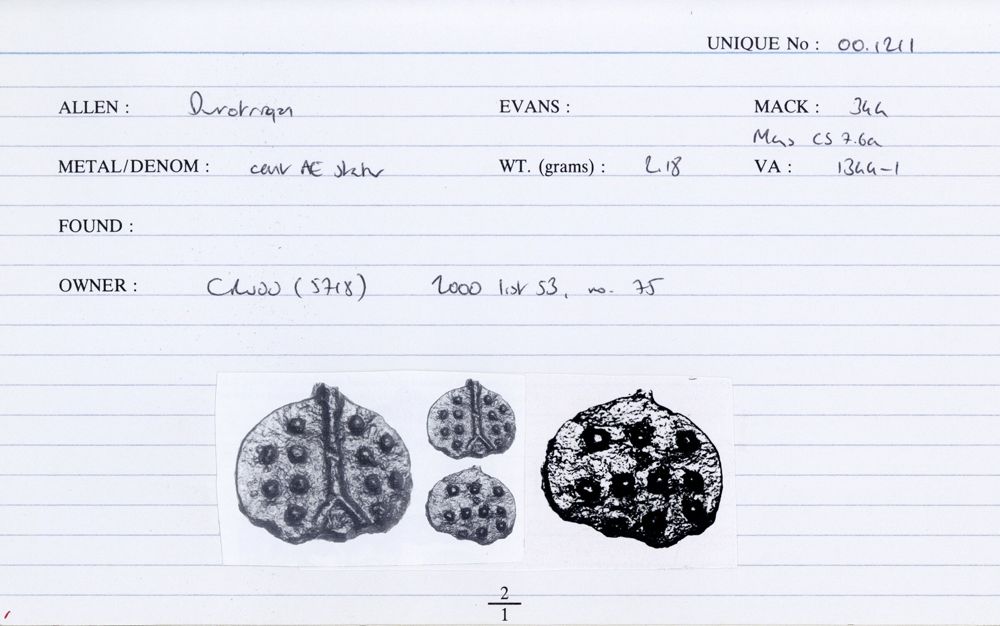 UNIQUE No : 00.1211
ALLEN : Durotrigan EVANS : MACK : 344
Mays CS 7.6a
METAL/DENOM : cast AE stater WT. (grams) : 2.18 VA : 1344-1
FOUND :
OWNER : (5718) 2000 list 53, no. 75
2
1